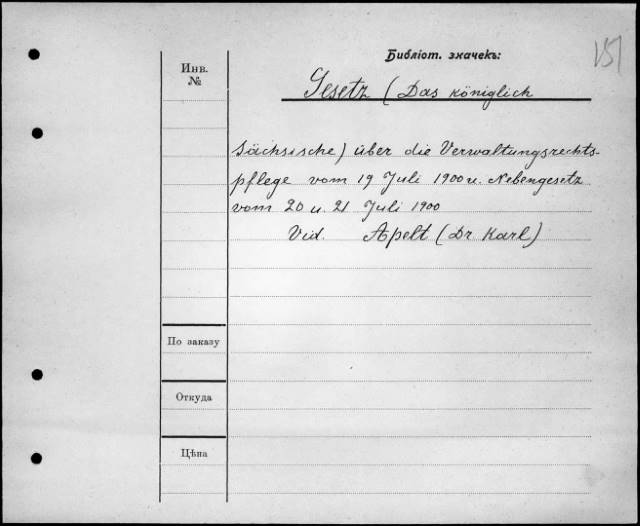 Библіот. значекъ:
151
Инв.
№
Gesetz (Das königlich
Sächsische) über die Verwaltungsrechts-
pflege vom 19 Juli 1900 u. Nebengesetz
vom 20 u. 21 Juli 1900
Vid. Apelt (Dr Karl)
По заказу
Откуда
Цѣна